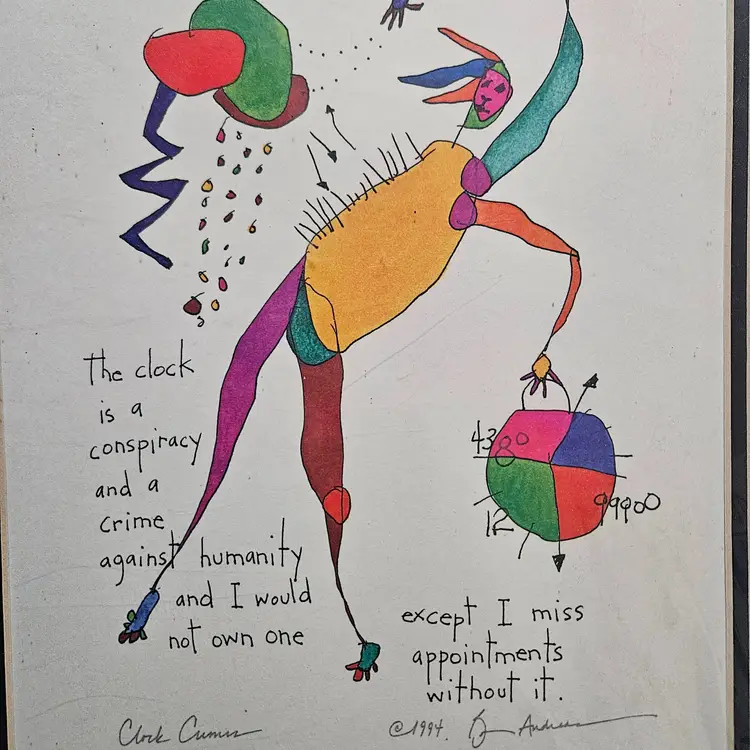 The clock
is a
conspiracy
and a
crime
against humanity
and I would
not own one
except I miss
appointments
without it.
438°
12
99900
©1994.